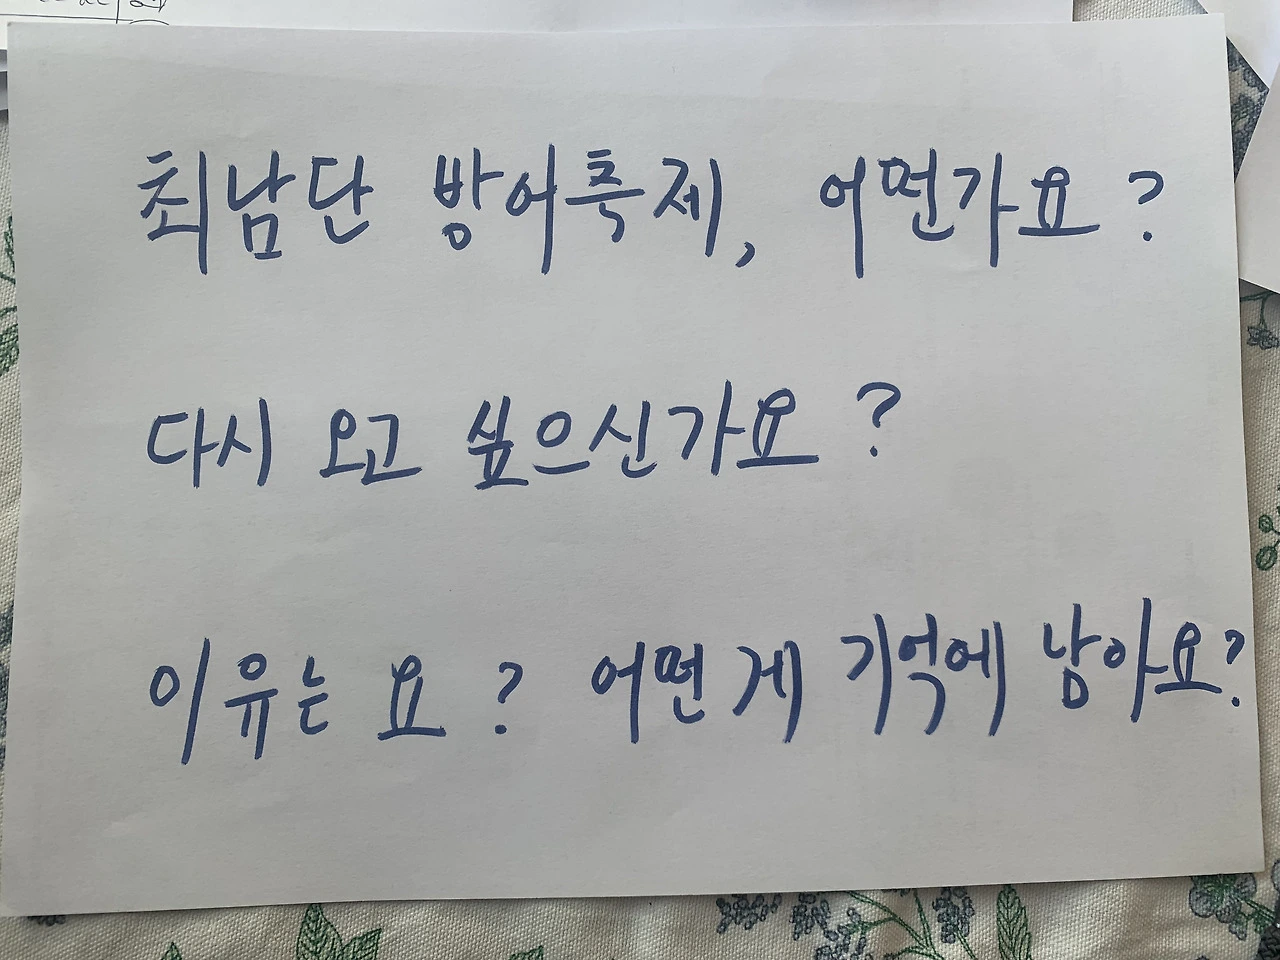 최남단 방어축제, 어떤가요?
다시 오고 싶으신가요?
이유는 요? 어떤 게 기억에 남아요?